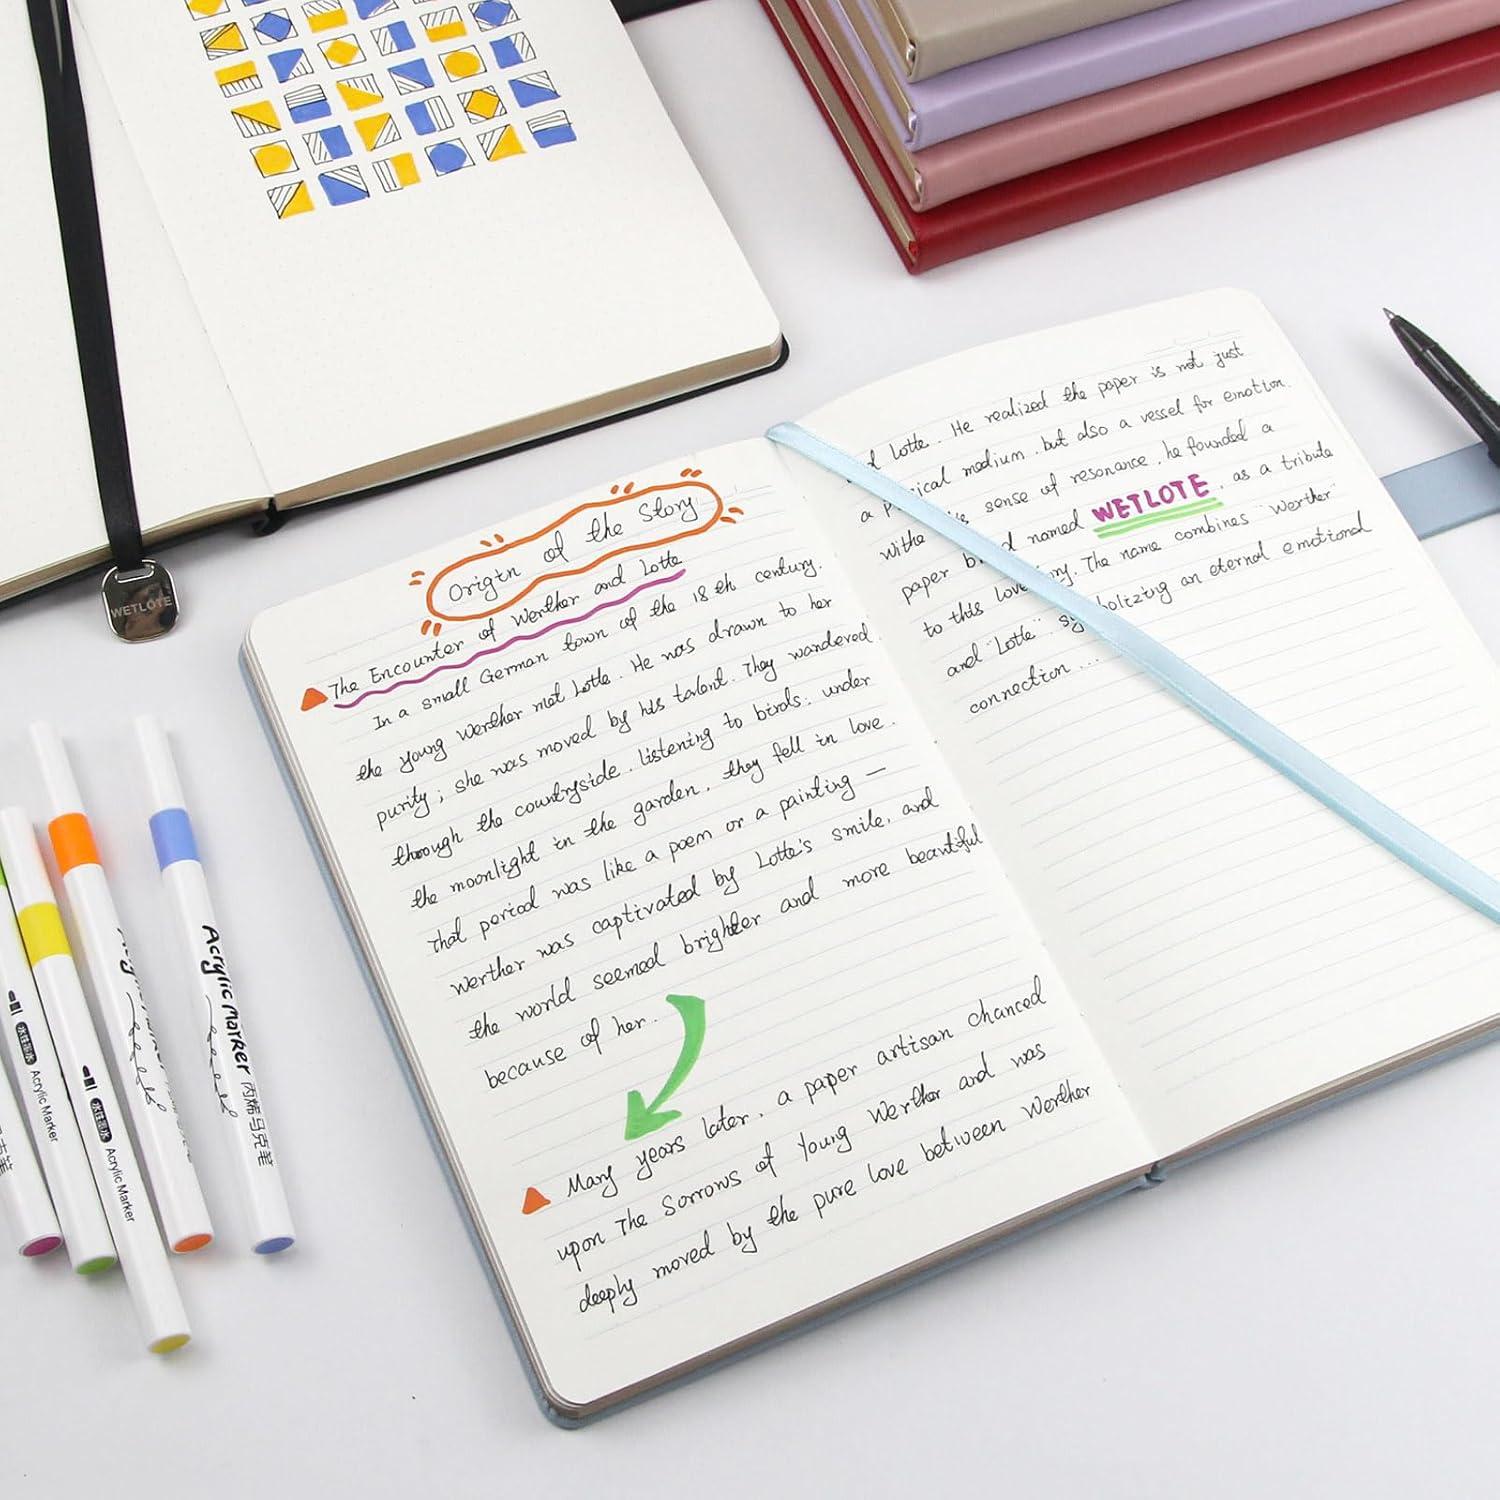 Origin of the Story
The Encounter of Werther and Lotte
In a small German town of the 18th century.
the young Werther met Lotte. He was drawn to her
purity; she was moved by his talent. They wandered
through the countryside. listening to birds; under
the moonlight in the garden, they fell in love.
That period was like a poem or a painting —
Werther was captivated by Lotte's smile, and
the world seemed brighter and more beautiful
because of her.
Many years later, a paper artisan chanced
upon The Sorrows of Young Werther and was
deeply moved by the pure love between Werther
Lotte. He realized the paper is not just
a medium, but also a vessel for emotion.
sense of resonance, he founded a
paper named WETLOTE, as a tribute
to this love. The name combines "Werther"
and "Lotte". an eternal emotional
connection ...
WETLOTE
Acrylic Marker
丙烯马克笔
Acrylic Marker
Acrylic Marker